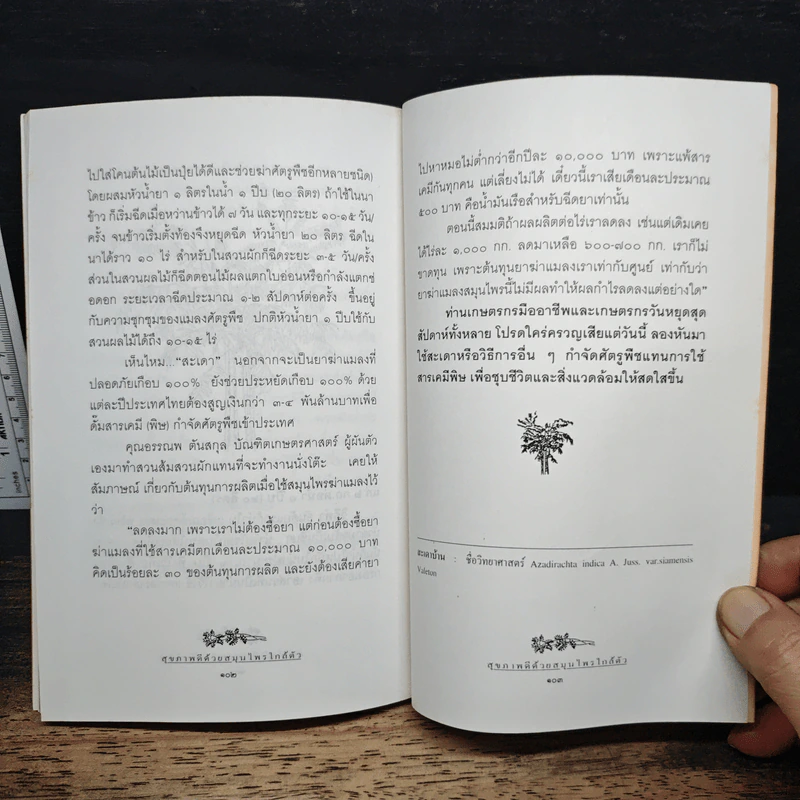 ไปใส่โคนต้นไม้เป็นปุ๋ยได้ดีและช่วยฆ่าศัตรูพืชอีกหลายชนิด)
โดยผสมหัวน้ำยา ๑ ลิตรในน้ำ ๑ ปีบ (๒๐ ลิตร) ถ้าใช้ในนา
ข้าว ก็เริ่มฉีดเมื่อหว่านข้าวได้ ๗ วัน และทุกระยะ ๑๐-๑๕ วัน/
ครั้ง จนข้าวเริ่มตั้งท้องจึงหยุดฉีด หัวน้ำยา ๒๐ ลิตร ฉีดใน
นาได้ราว ๑๐ ไร่ สำหรับในสวนผักก็ฉีดระยะ ๓-๕ วัน/ครั้ง
ส่วนในสวนผลไม้ก็ฉีดตอนไม้ผลแตกใบอ่อนหรือกำลังแตกช่
อดอก ระยะเวลาฉีดประมาณ ๑-๒ สัปดาห์ต่อครั้ง ขึ้นอยู่
กับความชุกชุมของแมลงศัตรูพืช ปกติหัวน้ำยา ๑ ปีบใช้กับ
สวนผลไม้ได้ถึง ๑๐-๑๕ ไร่
เห็นไหม...“สะเดา” นอกจากจะเป็นยาฆ่าแมลงที่
ปลอดภัยเกือบ ๑๐๐% ยังช่วยประหยัดเกือบ ๑๐๐% ด้วย
แต่ละปีประเทศไทยต้องสูญเงินกว่า ๓-๔ พันล้านบาทเพื่อ
ดั๊มสารเคมี (พิษ) กำจัดศัตรูพืชเข้าประเทศ
คุณอรรณพ ตันสกุล บัณฑิตเกษตรศาสตร์ ผู้ผันตัว
เองมาทำสวนส้มสวนผักแทนที่จะทำงานนั่งโต๊ะ เคยให้
สัมภาษณ์ เกี่ยวกับต้นทุนการผลิตเมื่อใช้สมุนไพรฆ่าแมลงไว้
ว่า
“ลดลงมาก เพราะเราไม่ต้องซื้อยา แต่ก่อนต้องซื้อยา
ฆ่าแมลงที่ใช้สารเคมีตกเดือนละประมาณ ๑๐,๐๐๐ บาท
คิดเป็นร้อยละ ๓๐ ของต้นทุนการผลิต และยังต้องเสียค่ายา
สุขภาพดีด้วยสมุนไพรใกล้ตัว
๑๐๒
ไปหาหมอไม่ต่ำกว่าอีกปีละ ๑๐,๐๐๐ บาท เพราะแพ้สาร
เคมีกันทุกคน แต่เลี่ยงไม่ได้ เดี๋ยวนี้เราเสียเดือนละประมาณ
๕๐๐ บาท คือน้ำมันเรือสำหรับฉีดยาเท่านั้น
ตอนนี้สมมติถ้าผลผลิตต่อไร่เราลดลง เช่นแต่เดิมเคย
ได้ไร่ละ ๑,๐๐๐ กก. ลดมาเหลือ ๖๐๐-๗๐๐ กก. เราก็ไม่
ขาดทุน เพราะต้นทุนยาฆ่าแมลงเราเท่ากับศูนย์ เท่ากับว่า
ยาฆ่าแมลงสมุนไพรนี้ไม่มีผลทำให้ผลกำไรลดลงแต่อย่างใด”
ท่านเกษตรกรมืออาชีพและเกษตรกรวันหยุดสุด
สัปดาห์ทั้งหลาย โปรดใคร่ครวญเสียแต่วันนี้ ลองหันมา
ใช้สะเดาหรือวิธีการอื่น ๆ กำจัดศัตรูพืชแทนการใช้
สารเคมีพิษ เพื่อชุบชีวิตและสิ่งแวดล้อมให้สดใสขึ้น
สะเดาบ้าน : ชื่อวิทยาศาสตร์ Azadirachta indica A. Juss. var.siamensis
Valeton
สุขภาพดีด้วยสมุนไพรใกล้ตัว
๑๐๓
inches